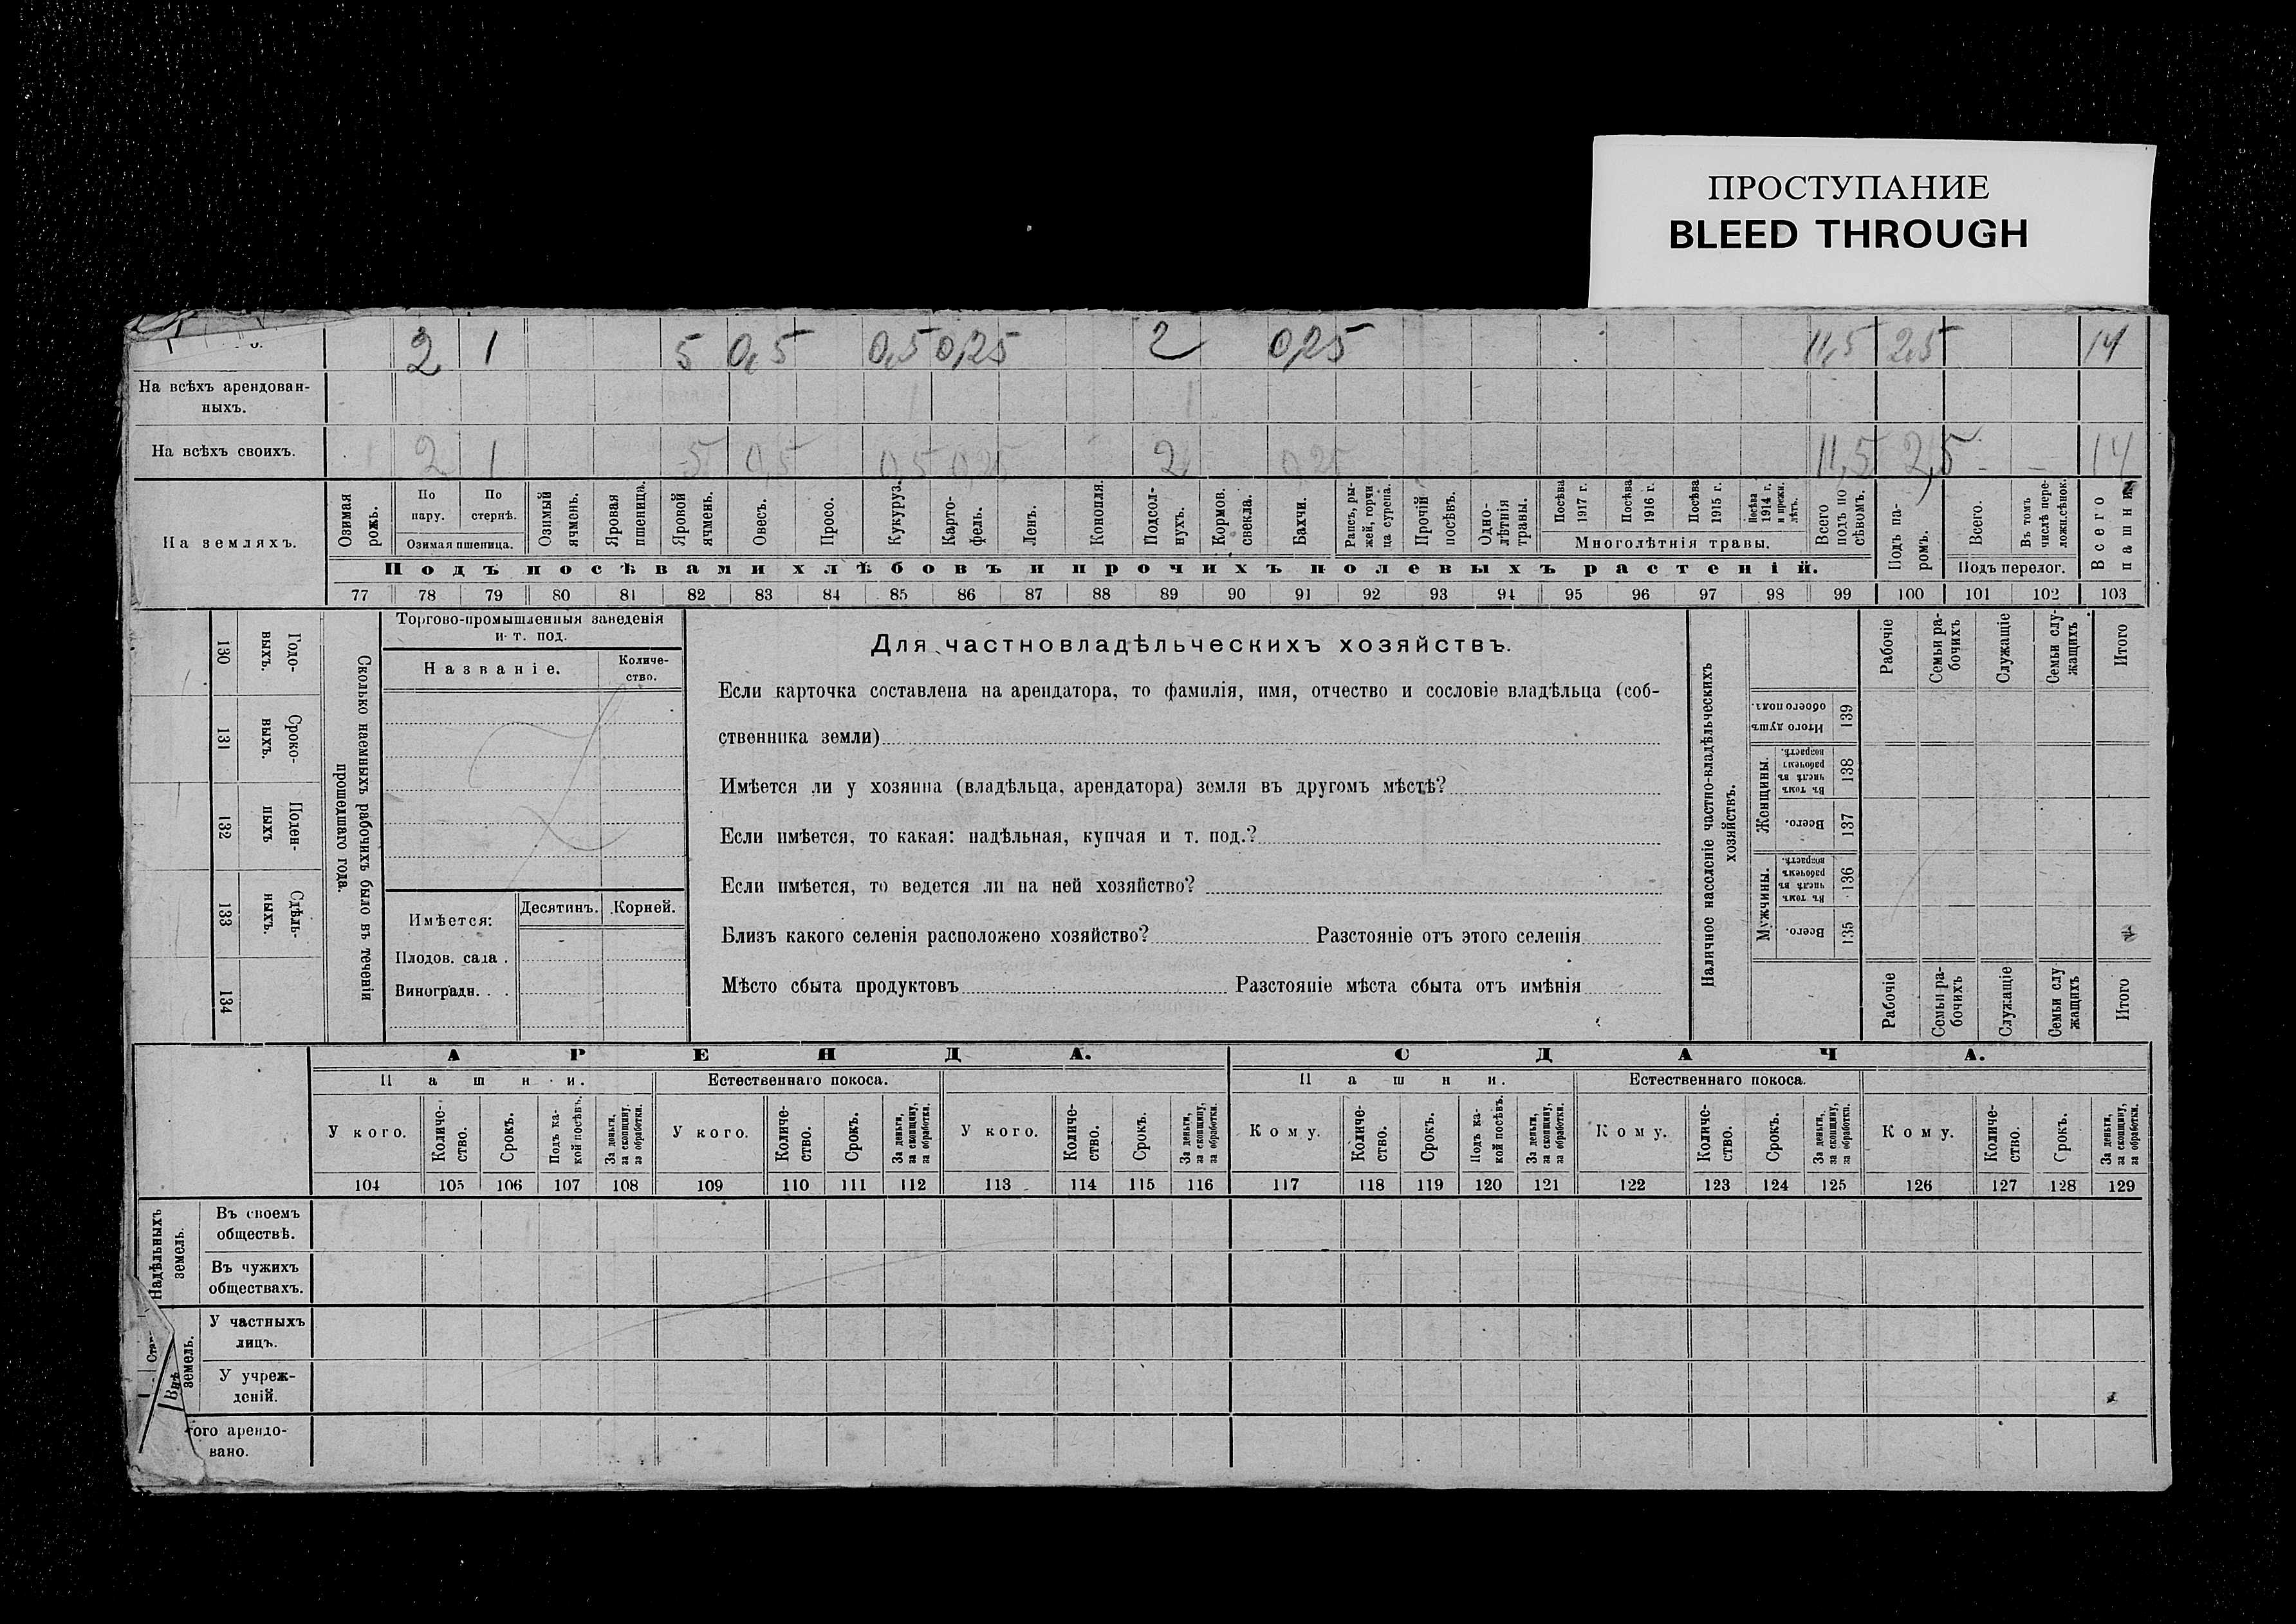 ПРОСТУПАНИЕ
BLEED THROUGH
2 1 5 0,5 0,5 0,25 2 0,25 11,5 2,5 14
На всѣхъ арендован-
ныхъ.
На всѣхъ своихъ. 2 1 5 0,5 0,5 0,25 2 0,25 11,5 2,5 - - 14
На земляхъ.
Озимая рожь.
По пару.
По стернѣ.
Озимая пшеница.
Озимый ячмень.
Яровая пшеница.
Яровой ячмень.
Овесъ.
Просо.
Кукуруз.
Карто-
фель.
Ленъ.
Конопля.
Подсол-
нухъ.
Кормов.
свекла.
Бахчи.
Рапсъ, ры-
жей, горчи
ца сурепа.
Прочій
посѣвъ.
Одно-
лѣтнія
травы.
Посѣва
1917 г.
Посѣва
1916 г.
Посѣва
1915 г.
Посѣва
1914 г.
и прежн.
лѣтъ.
Многолѣтнія травы.
Всего
подъ по
сѣвомъ.
Подъ па-
ромъ.
Всего.
Въ томъ
числѣ пере-
ложн.сѣнок.
Подъ перелог.
Всего
пашни
Подъ посѣвами хлѣбовъ и прочихъ полевыхъ растеній.
77 78 79 80 81 82 83 84 85 86 87 88 89 90 91 92 93 94 95 96 97 98 99 100 101 102 103
130
Годо-
выхъ.
131
Сроко-
выхъ.
132
Поден-
ныхъ
133
Сдѣль-
ныхъ.
134
Сколько наемныхъ рабочихъ было въ теченіи
прошедшаго года.
Торгово-промышленныя заведенія
и т. под.
Названіе.
Количе-
ство.
Имѣется:
Десятинъ.
Корней.
Плодов. сада .
Виноградн. . .
Для частновладѣльческихъ хозяйствъ.
Если карточка составлена на арендатора, то фамилія, имя, отчество и сословіе владѣльца (соб-
ственника земли)
Имѣется ли у хозяина (владѣльца, арендатора) земля въ другомъ мѣстѣ?
Если имѣется, то какая: надѣльная, купчая и т. под.?
Если имѣется, то ведется ли на ней хозяйство?
Близъ какого селенія расположено хозяйство? Разстояніе отъ этого селенія
Мѣсто сбыта продуктовъ Разстояніе мѣста сбыта отъ имѣнія
Наличное населеніе частно-владѣльческихъ
хозяйствъ.
Рабочіе
Семьи ра-
бочихъ
Служащіе
Семьи слу-
жащихъ
Итого
Итого душъ
обоего пола.
139
Женщины.
Въ томъ
числѣ въ
рабочемъ
возрастѣ.
138
Всего.
137
Мужчины.
Въ томъ
числѣ въ
рабочемъ
возрастѣ.
136
Всего.
135
Рабочіе
Семьи ра-
бочихъ
Служащіе
Семьи слу
жащихъ
Итого
АРЕНДА.
СДАЧА.
Пашни.
Естественнаго покоса.
Пашни.
Естественнаго покоса.
У кого.
Количе-
ство.
Срокъ.
Подъ ка-
кой посѣвъ.
За деньги,
за скопщину,
за обработки.
У кого.
Количе-
ство.
Срокъ.
За деньги,
за скопщину,
за обработки.
У кого.
Количе-
ство.
Срокъ.
За деньги,
за скопщину,
за обработки.
Кому.
Количе-
ство.
Срокъ.
Подъ ка-
кой посѣвъ.
За деньги,
за скопщину,
за обработки.
Кому.
Количе-
ство.
Срокъ.
За деньги,
за скопщину,
за обработки.
Кому.
Количе-
ство.
Срокъ.
За деньги,
за скопщину,
за обработки.
104 105 106 107 108 109 110 111 112 113 114 115 116 117 118 119 120 121 122 123 124 125 126 127 128 129
Надѣльныхъ
земель.
Въ своемъ
обществѣ.
Въ чужихъ
обществахъ.
Внѣ
земель.
У частныхъ
лицъ.
У учреж-
деній.
ого арендо-
вано.